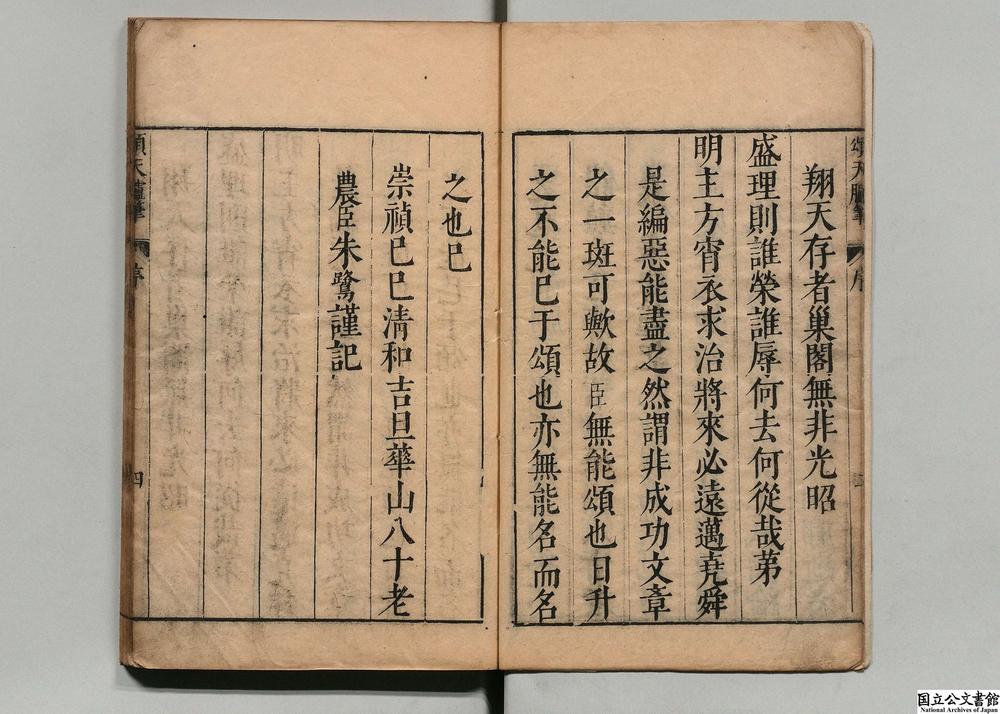 頌天臚筆
序
翔天存者巢閣無非光昭
盛理則誰榮誰辱何去何從哉苐
明主方宵衣求治將來必遠邁堯舜
是編惡能盡之然謂非成功文章
之一斑可歟故臣無能頌也日升
之不能已于頌也亦無能名而名
之也已
崇禎己巳清和吉旦華山八十老
農臣朱鷺謹記
頌天臚筆
序
四
国立公文書館
National Archives of Japan